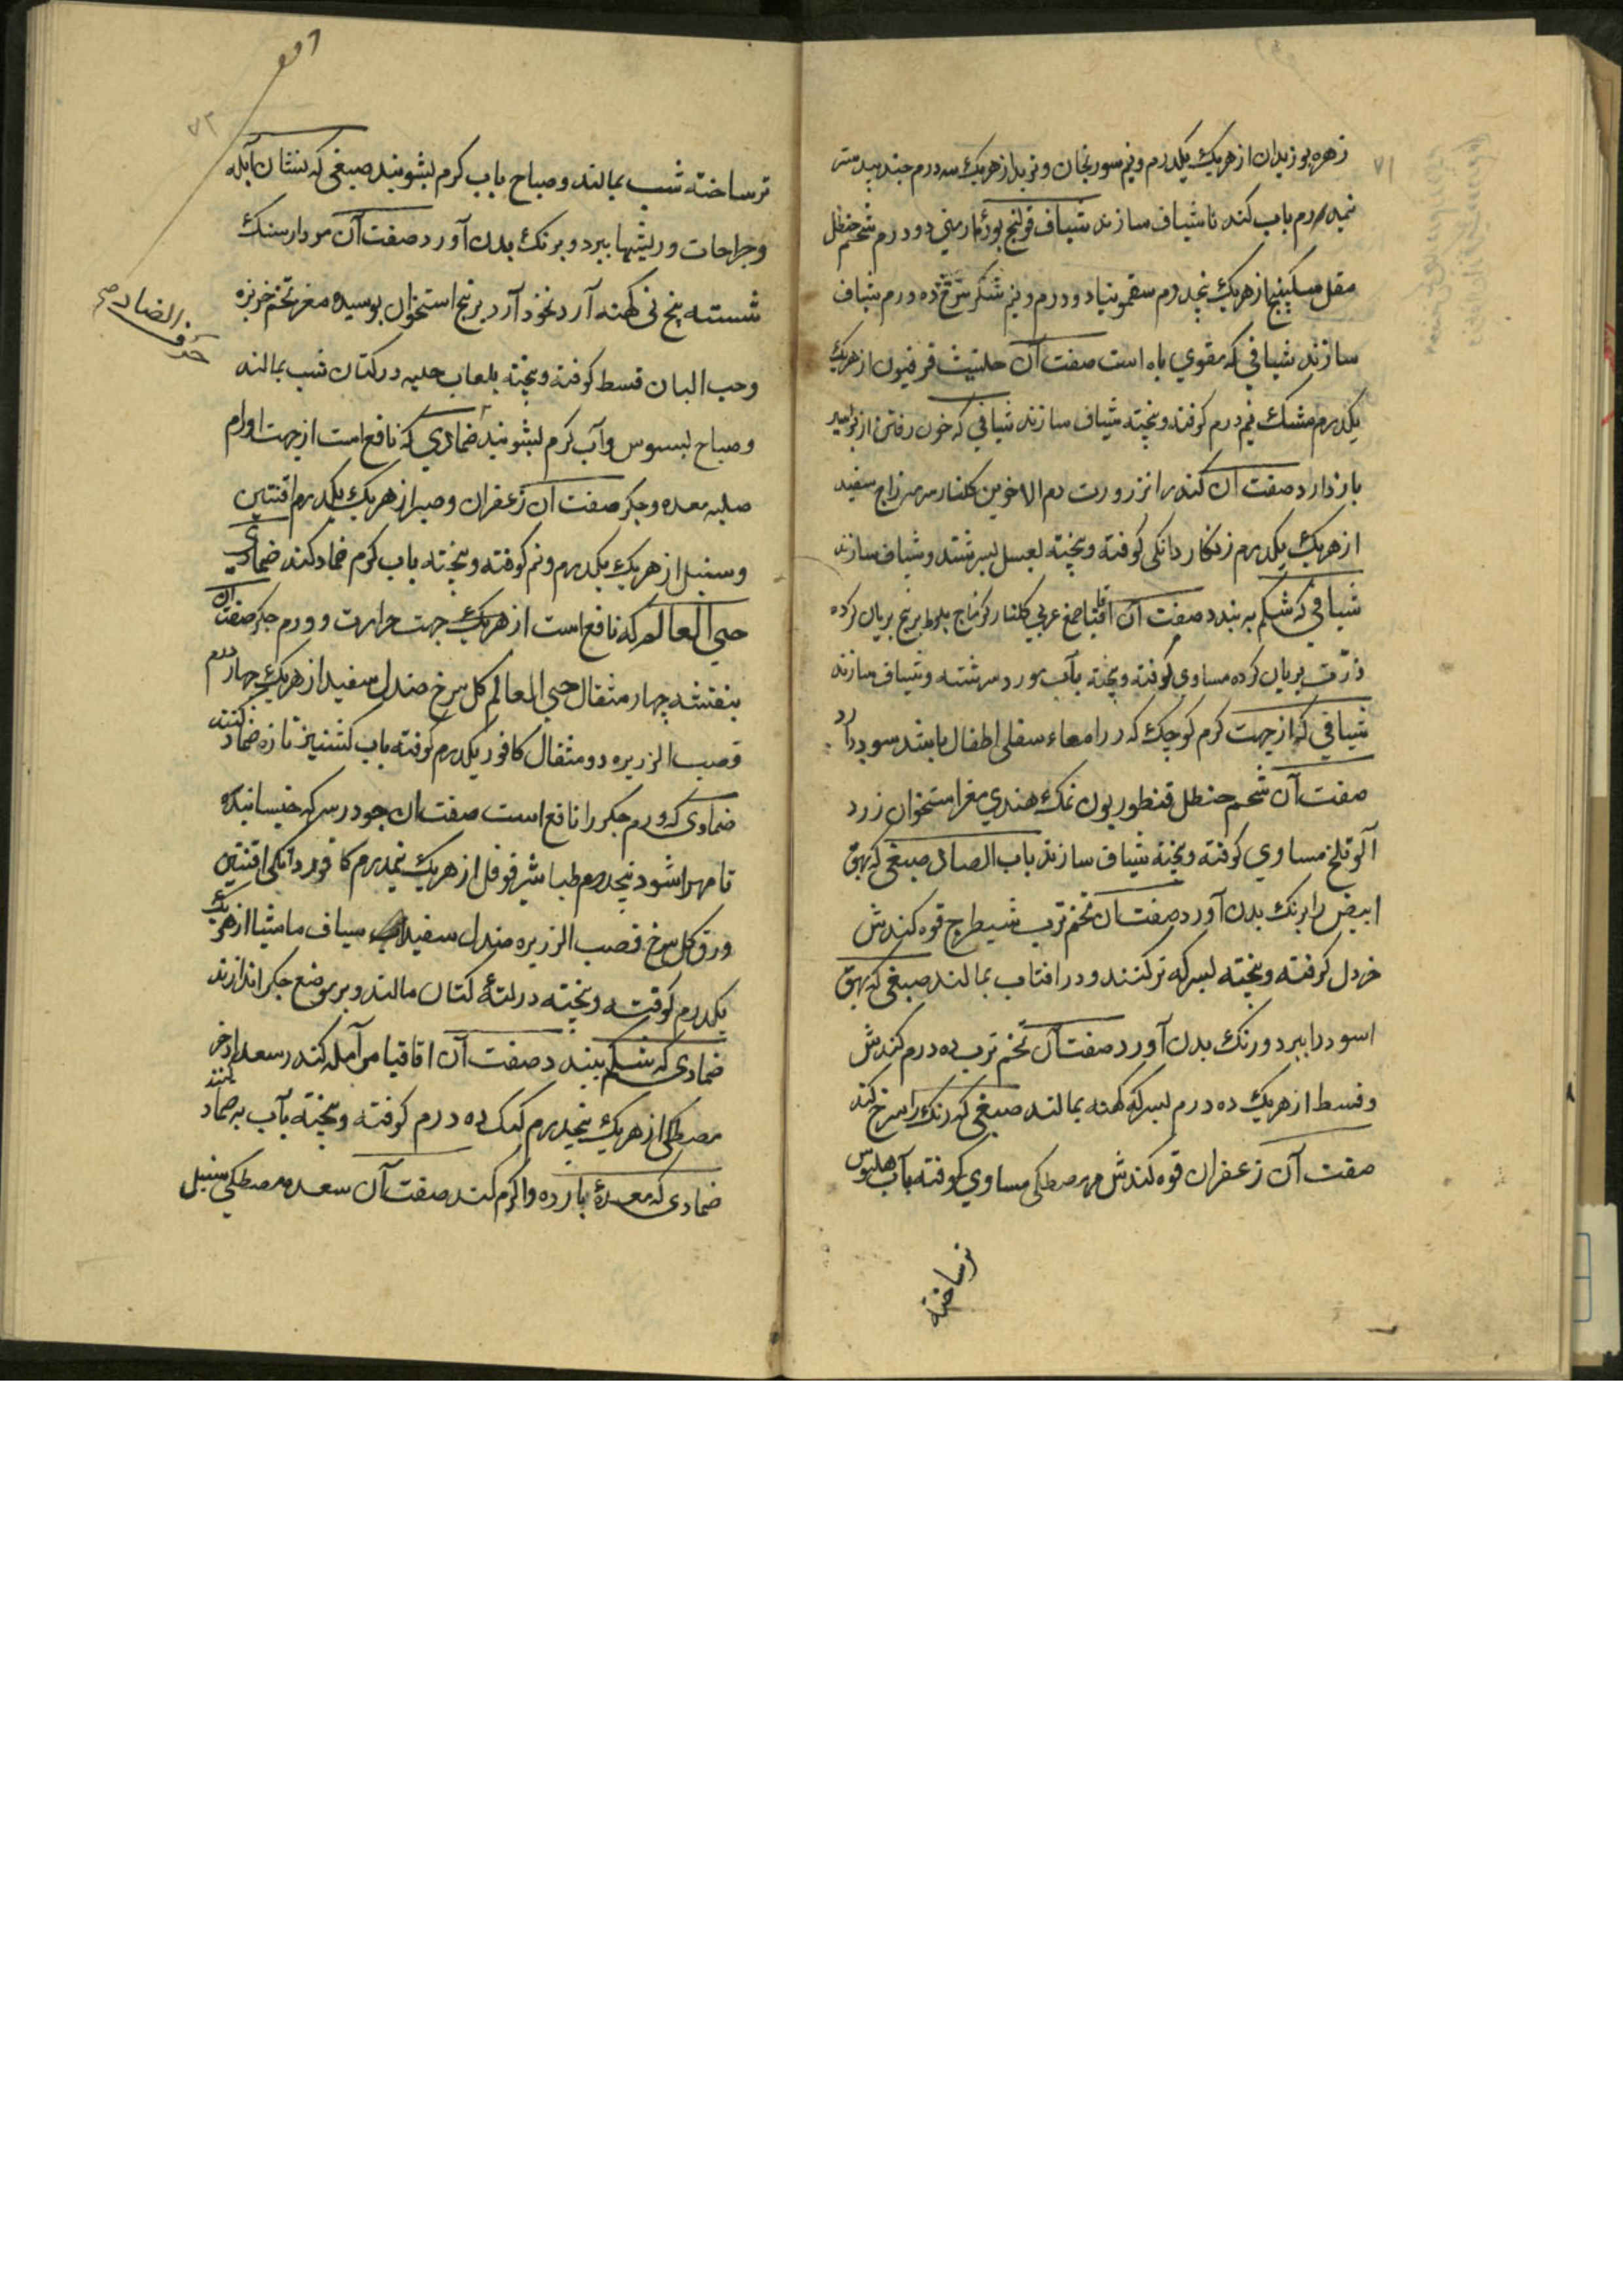 زهره بوزیدان از هریک یکدرم ونیم سورنجان وتربد از هریک سه درم جندبیدستر
نیمدرم باب کند ناشیاف سازند شیاف قولنج بورهٔ ارمنی دو درم شحم حنظل
مقل سکبینج از هریک پنجدرم سقمونیا دو درم ونیم شکر سرخ ده درم شیاف
سازند شیافی که مقوي باه است صفت آن حلتیت فرفیون از هریک
یکدرم مشک نیم درم کوفته وبیخته شیاف سازند شیافی که خون رفتن از بواسیر
باز دارد صفت آن کندر انزروت دم الاخوین کلنار مر زاج سفید
از هریک یکدرم زنکار دانکی کوفته وبیخته لعسل لبرشته وشیاف سازند
شیافی که شکم به بندد صفت آن اقاقیا صمغ عربي کلنار کزمازج بلوط برنج بریان کرده
ذرّت بریان کرده مساوي کوفته وبیخته بآب مورد سرشته وشیاف سازند
شیافي که از جهت کرم کوچک که در امعاء سفلی اطفال باشد سود دارد
صفت آن شحم حنظل قنطوریون نمک هندي مغز استخوان زرد
آلو تلخ مساوي کوفته وبیخته شیاف سازند باب الصاد صبغی که بهق
ابیض را برنک بدن آورد صفت آن تخم ترب شیطرج قوه کندش
خردل کوفته وبیخته لبسرکه تر کنند ودر افتاب بمالند صبغی که بهق
اسود را ببرد ورنک بدن آورد صفت آن تخم ترب ده درم کندش
وقسط از هریک ده درم لبسرکه کهنه بمالند صبغی که رنک را سرخ کند
صفت آن زعفران قوه کندش مر مصطکی مساوي کوفته بآب
ترساخته
۷۱
ترساخته شب بمالند وصباح باب کرم لبشویند صبغی که نشان آبله
وجراحات وریشها ببرد وبرنک بدن آورد صفت آن مردارسنک
شسته بیخ نی کهنه آرد نخود آرد برنج استخوان بوسیده مغز تخم خربزه
وحب البان قسط کوفته وبیخته بلعاب حلبه در کتان شب بمالند
وصباح لبسبوس وآب کرم لبشویند ضمادي که نافع است از جهت اورام
صلبه معده وجکر صفت آن زعفران وصبر از هریک یکدرم افسنتین
وسنبل از هریک یکدرم ونیم کوفته وبیخته باب کرم ضماد کند ضمادي
حي العالم که نافع است از هریک جهت حرارت وورم جکر صفت آن
بنفشه چهار مثقال حي العالم کل سرخ صندل سفید از هریک چهار درم
قصب الزریره دو مثقال کافور یکدرم کوفته باب کشنیز تازه ضماد کنند
ضمادی که ورم جکر را نافع است صفت آن جو در سرکه خیسانیده
تا مهرا شود پنجدرم طباشیر فوفل از هریک نیمدرم کافور دانکی افسنتین
ورق کل سرخ قصب الزریره صندل سفید شیاف مامیثا از هریک
یکدرم کوفته وبیخته در لتهٔ کتان مالند وبر موضع جکر اندازند
ضمادی که شکم ببندد صفت آن اقاقیا مر آمله کندر سعد اذخر
مصطکی از هریک پنجدرم کعک ده درم کوفته وبیخته بآب به ضماد کنند
ضمادی که معدهٔ بارده را کرم کند صفت آن سعد مصطکی سنبل
حرف الضاد